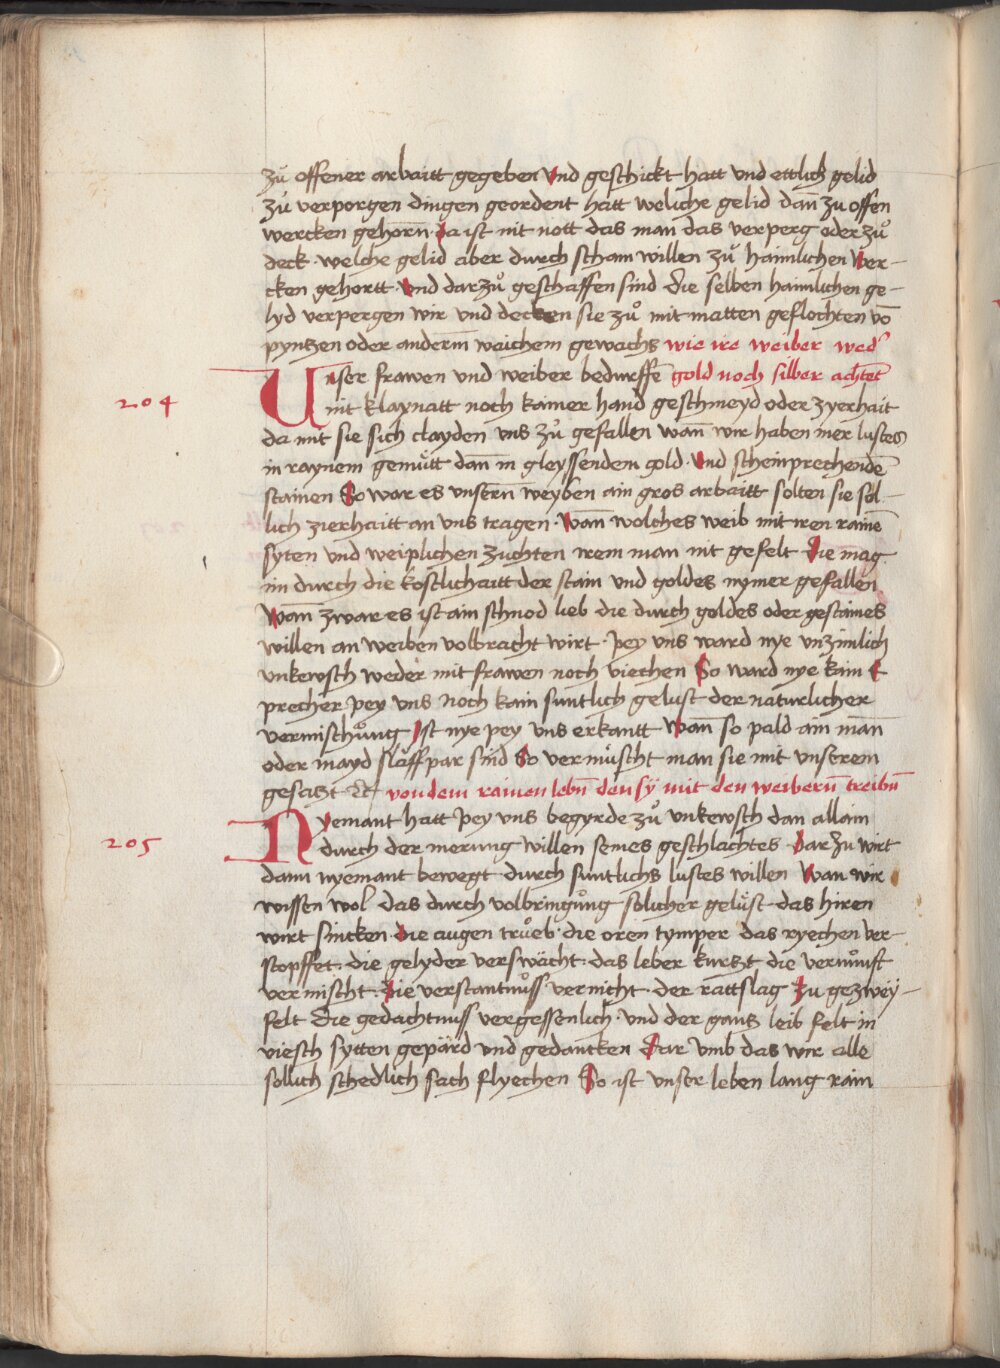 zů offener arbaitt gegeben Vnd geschickt hatt vnd ettlich gelid
zů verporgen dingen geordent hatt weliche gelid dañ zu offen
wercken gehorñ Da ist nit nott das man das verperg oder zů
deck · welche gelid aber durch scham willen zů haimlichen Wer-
cken gehortt · Vnd darzů geschaffen sind die selben haimlichen ge-
lyd verpergen wir vnd decken sie zů mit matten geflochten võ
pyntzen oder anderm̃ waichem gewachs wie ire weiber wed'
204
Vnser frawen vnd weiber bedurffẽ gold noch silber achtet
nit klaynatt noch kainer hand geschmeyd oder zyerhait
da mit sie sich clayden vns zů gefallen wañ wir haben mer lustes
in raynem gemu̇tt dañ in gleyssendem gold · Vnd scheinprechendẽ
stainen So war es vnserñ weyben ain gros arbaitt solten sie sol-
lich zierhaitt an vns tragen · Wañ wolches weib mit iren rainẽ
syten vnd weiplichen zuchten irem man nit gefelt Die mag
im durch die kostlichaitt der stain vnd goldes nymer gefallen
Wañ zwar es ist ain schnod lieb die durch goldes oder gestaines
willen an weiben volbracht wirt · pey vns ward nye vnzimlich
vnkewsch weder mit frawen noch viechen So ward nye kain E
precher pey vns noch kain suntlich gelust der naturlicher
vermischůng Ist nye pey vns erkantt Wañ so pald ain mañ
oder mayd slaffpar sind So vermüscht man sie mit vnserem
gesatzt etc von dem rainen lebñ den sy mit den weiberñ treibñ
205
Nyemant hatt pey vns begyrde zů vnkewsch dan allain
durch der merung willen seines geschlachtes · Dar zu wirt
dann nyemant bewegt durch suntlichs lustes willen Wan wir
wissen wol das durch volbringůng solicher gelüst das hiren
wirt sincken Die augen trůeb · die oren tymper das ryechen ver-
stopffet · die gelyder verswächt · das leber kurtzt die vernůnft
vermischt · Die verstantnůss vernicht · der rattslag Zu gezwey-
felt Die gedachtnuss vergessenlich · vnd der gans leib felt in
viesch sytten gepärd vnd gedancken Dar vmb das wir alle
sollich schedlich sach flyechen So ist vnser leben lang rain